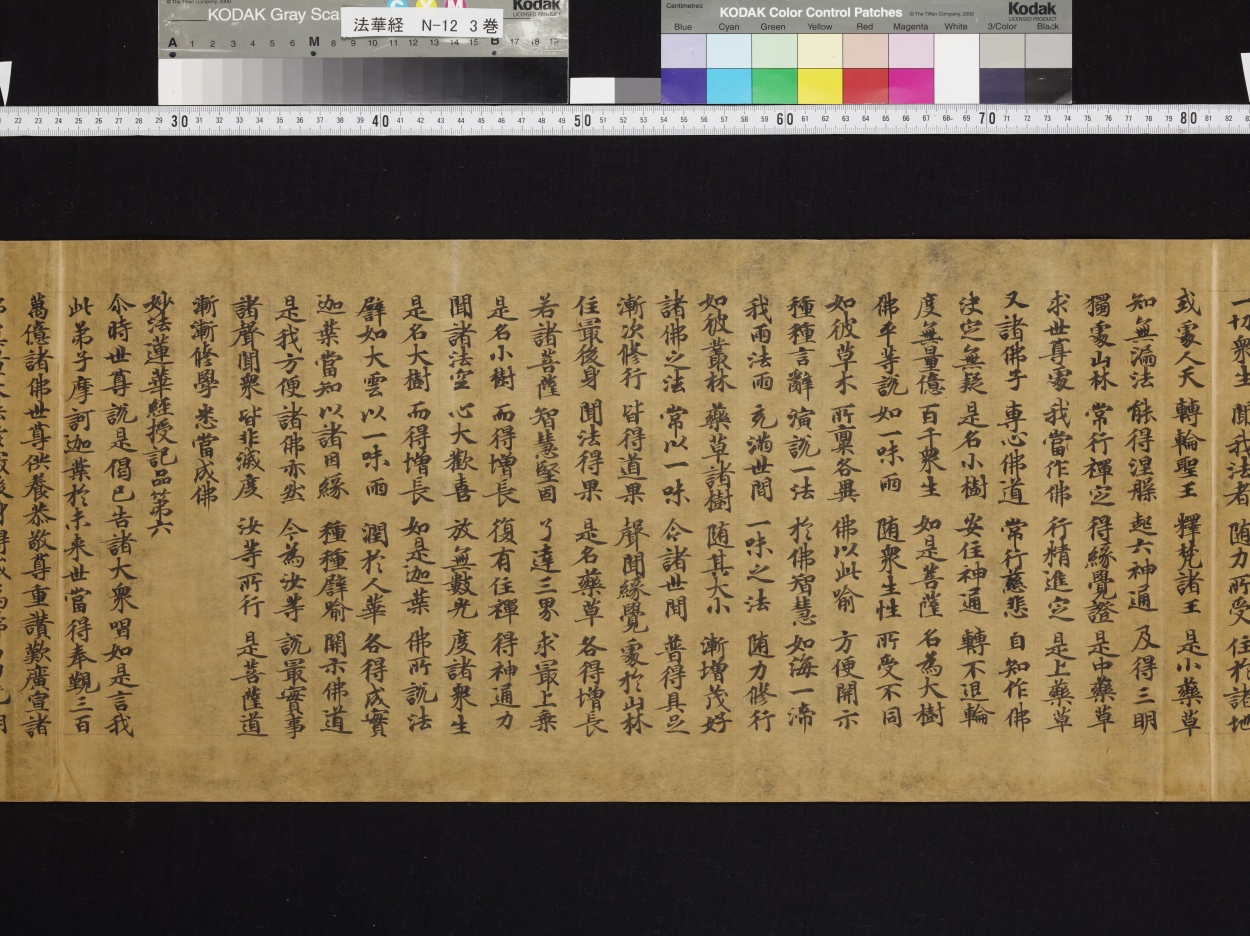 KODAK Gray Scale
法華経 N-12 3巻
Kodak
LICENSED PRODUCT
© The Tiffen Company, 2000
A 1 2 3 4 5 6 M 8 9 10 11 12 13 14 15 B 17 18 19
Centimetres
KODAK Color Control Patches
© The Tiffen Company, 2000
Kodak
LICENSED PRODUCT
Blue Cyan Green Yellow Red Magenta White 3/Color Black
22 23 24 25 26 27 28 29 30 31 32 33 34 35 36 37 38 39 40 41 42 43 44 45 46 47 48 49 50 51 52 53 54 55 56 57 58 59 60 61 62 63 64 65 66 67 68 69 70 71 72 73 74 75 76 77 78 79 80 81 82
一切衆生 聞我法者 随力所受 住於諸地
或處人天 轉輪聖王 釋梵諸王 是小藥草
知無漏法 能得涅槃 起六神通 及得三明
獨處山林 常行禪定 得縁覺證 是中藥草
求世尊處 我當作佛 行精進定 是上藥草
又諸佛子 專心佛道 常行慈悲 自知作佛
決定無疑 是名小樹 安住神通 轉不退輪
度無量億 百千衆生 如是菩薩 名為大樹
佛平等說 如一味雨 随衆生性 所受不同
如彼草木 所稟各異 佛以此喻 方便開示
種種言辭 演說一法 於佛智慧 如海一渧
我雨法雨 充滿世間 一味之法 随力修行
如彼叢林 藥草諸樹 随其大小 漸增茂好
諸佛之法 常以一味 令諸世間 普得具足
漸次修行 皆得道果 聲聞縁覺 處於山林
住最後身 聞法得果 是名藥草 各得增長
若諸菩薩 智慧堅固 了達三界 求最上乘
是名小樹 而得增長 復有住禪 得神通力
聞諸法空 心大歡喜 放無數光 度諸衆生
是名大樹 而得增長 如是迦葉 佛所說法
譬如大雲 以一味雨 潤於人華 各得成實
迦葉當知 以諸因縁 種種譬喻 開示佛道
是我方便 諸佛亦然 今為汝等 說最實事
諸聲聞衆 皆非滅度 汝等所行 是菩薩道
漸漸修學 悉當成佛
妙法蓮華経授記品第六
尒時世尊說是偈已告諸大衆唱如是言我
此弟子摩訶迦葉於未来世當得奉覲三百
萬億諸佛世尊供養恭敬尊重讚歎廣宣諸